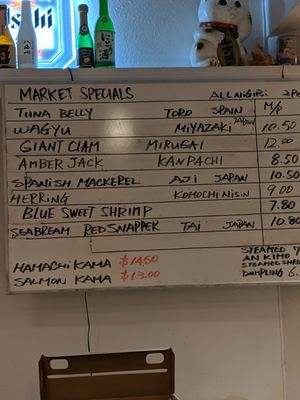 Asahi
MARKET SPECIALS ALL NIGIRI 2PC
TUNA BELLY TORO SPAIN M/P
WAGYU MIYAZAKI JAPAN 10.50
GIANT CLAM MIRUGAI 12.00
AMBER JACK KANPACHI 8.50
SPANISH MACKEREL AJI JAPAN 10.50
HERRING KOMOCHI NISIN 9.00
BLUE SWEET SHRIMP 7.80
SEABREAM RED SNAPPER TAI JAPAN 10.80
HAMACHI KAMA $14.50
SALMON KAMA $13.00
STEAMED
AN KIMO
STEAMED SHRI
DUMPLING 6.